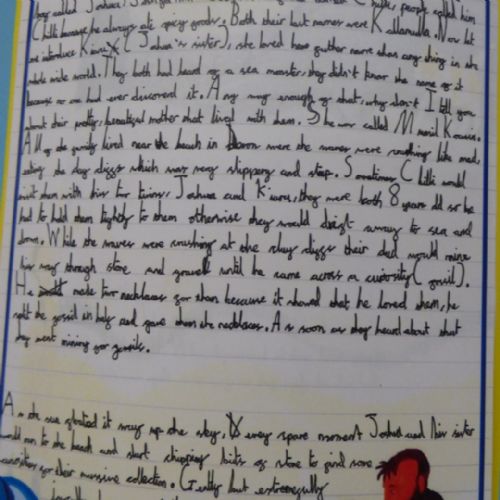 boy called Joshua people called him
Chilli because he always ate spicy goods. Both their last names were Kallanulla. Now let
me introduce Kiara (Joshua's sister), she loved her father more than any thing in the
whole wide world. They both had heard of a sea monster, they didn't know the name of it
because no one had ever discovered it. Any way enough of that, why don't I tell you
about their pretty, beautiful mother that lived with them. She was called
All of the family lived near the beach in were the waves were crushing like mad,
eating the clay cliggs which was very slippery and steep. Sometimes Chilli would
meet them with his twins. Joshua and Kiara, they were both 8 years old so he
had to hold them tightly to them otherwise they would drift away to sea and
drown. While the waves were crushing at the clay cliggs their dad would mine
his way through stone and until he came across a curiosity (fossil).
He made two necklaces for them because it showed that he loved them, he
split the fossil in half and gave them the necklaces. As soon as they heard about that
they went mining for fossils.
As the sea it way up the sky. every spare moment Joshua and his sister
would run to the beach and start chipping bits of stone to find more
curiosities for their massive collection. Gently but extremely